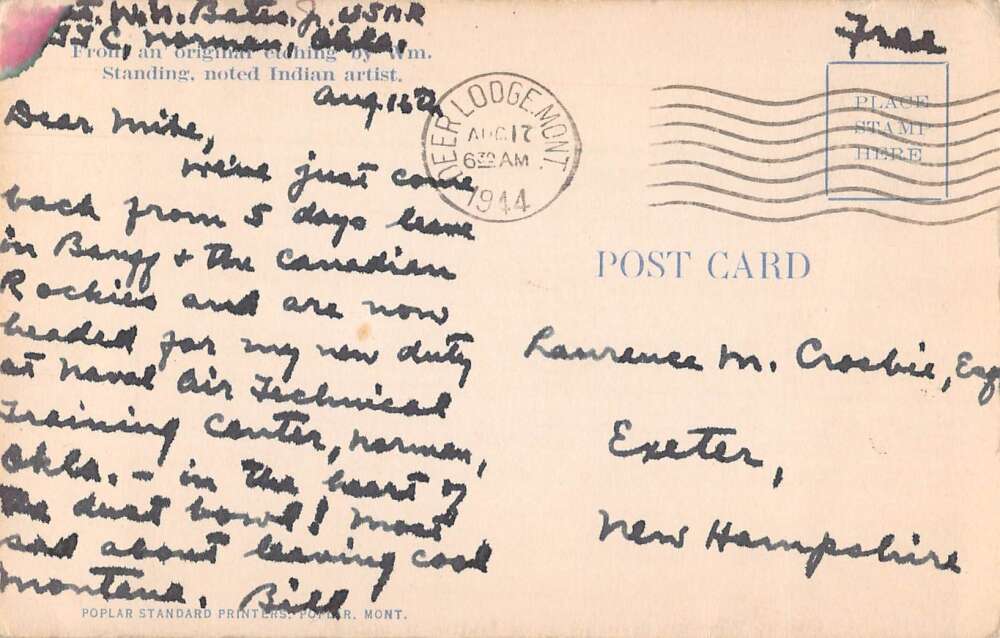 Lt. W. N. Bates, Jr. USNR
TTC, Norman, Okla.
From an original etching by Wm.
Standing, noted Indian artist.
Aug 16th
Dear Mike,
We've just come
back from 5 days leave
in Banff + the Canadian
Rockies and are now
headed for my new duty
at Naval Air Technical
Training Center, Norman,
Okla. - in the heart of
the dust bowl! Most
sad about leaving cool
Montana. Bill
POPLAR STANDARD PRINTERS, POPLAR, MONT.
DEER LODGE, MONT.
AUG 17
6 30 AM
1944
Free
PLACE
STAMP
HERE
POST CARD
Laurence M. Crosbie, Esq
Exeter,
New Hampshire